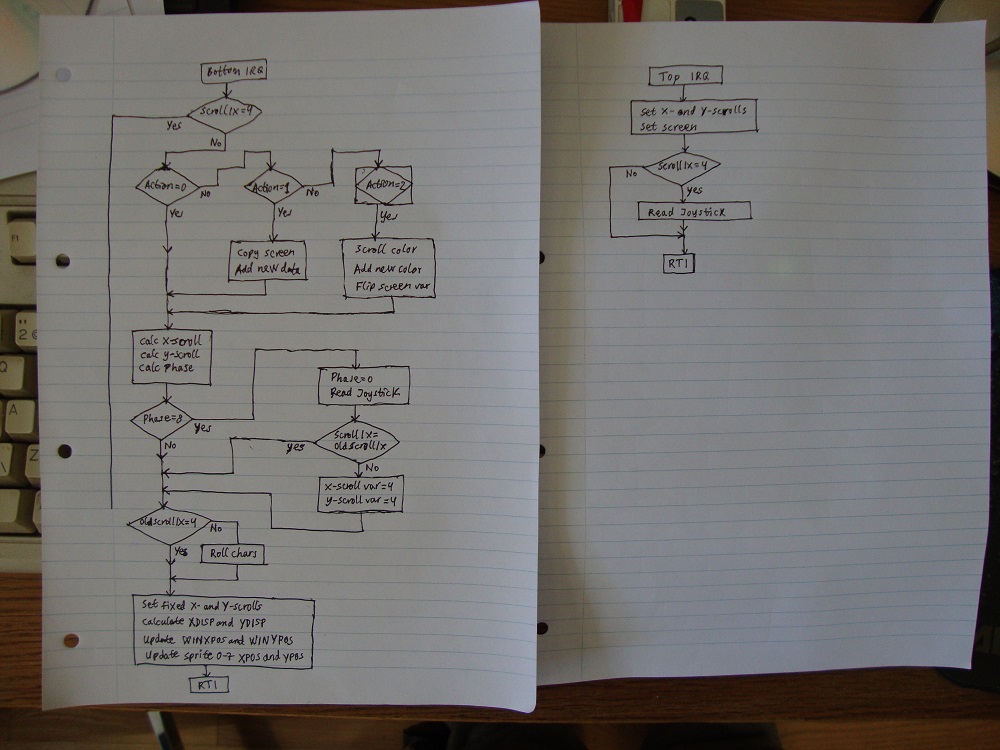 Bottom IRQ
ScrollIx=4
Yes
No
Action=0
No
Action=1
No
Action=2
Yes
Yes
Yes
Copy screen
Add new data
Scroll color
Add new color
Flip screen var
calc x-scroll
calc y-scroll
calc Phase
Phase=0
Read Joystick
Phase=8
Yes
No
ScrollIx=
OldscrollIx
yes
No
x-scroll var=4
y-scroll var=4
OldscrollIx=4
No
Yes
Roll chars
Set fixed X- and Y-scrolls
Calculate XDISP and YDISP
Update WINXPOS and WINYPOS
Update sprite 0-7 XPOS and YPOS
RTI
Top IRQ
Set X- and Y-scrolls
Set screen
ScrollIx=4
No
yes
Read Joystick
RTI
F1
2
Q
A
Z